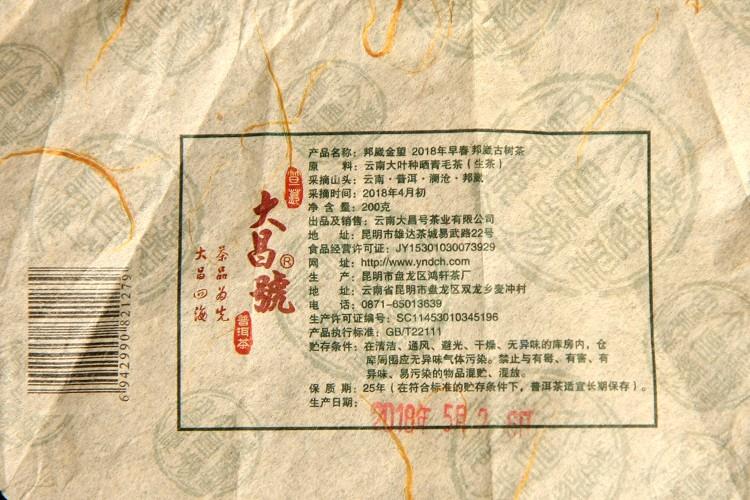 产品名称：邦崴金望 2018年早春邦崴古树茶
原 料：云南大叶种晒青毛茶（生茶）
采摘山头：云南·普洱·澜沧·邦崴
采摘时间：2018年4月初
净 含 量：200克
出品及销售：云南大昌号茶业有限公司
地 址：昆明市雄达茶城易武路22号
食品经营许可证：JY15301030073929
网 址：http://www.yndch.com
生 产：昆明市盘龙区鸿轩茶厂
地 址：云南省昆明市盘龙区双龙乡麦冲村
电 话：0871-65013639
生产许可证编号：SC11453010345196
产品执行标准：GB/T22111
贮存条件：在清洁、通风、避光、干燥、无异味的库房内，仓
库周围应无异味气体污染。禁止与有毒、有害、有
异味、易污染的物品混贮、混放。
保 质 期：25年（在符合标准的贮存条件下，普洱茶适宜长期保存）。
生产日期：
2018年 5月 2
大昌號®
普洱茶
茶品为先
大昌四海
6942990821279